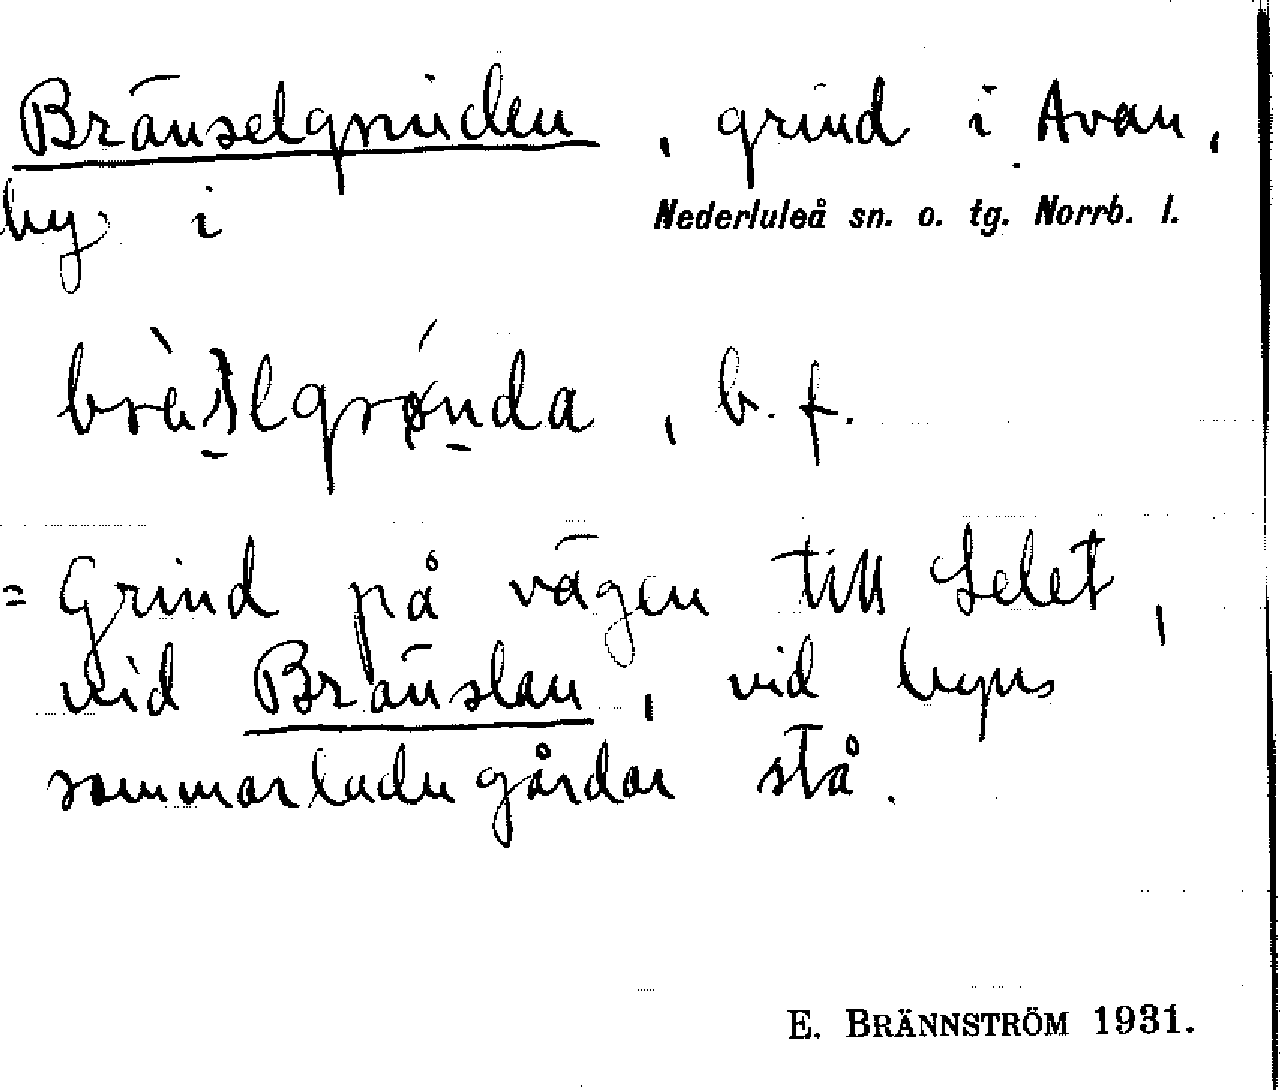 Bränselgrinden, grind i Avan,
by i Nederluleå sn. o. tg. Norrb. l.
, b. f.
= Grind på vägen till Selet,
vid Bränslan, vid byns
sommarladugårdar stå.
E. BRÄNNSTRÖM 1931.